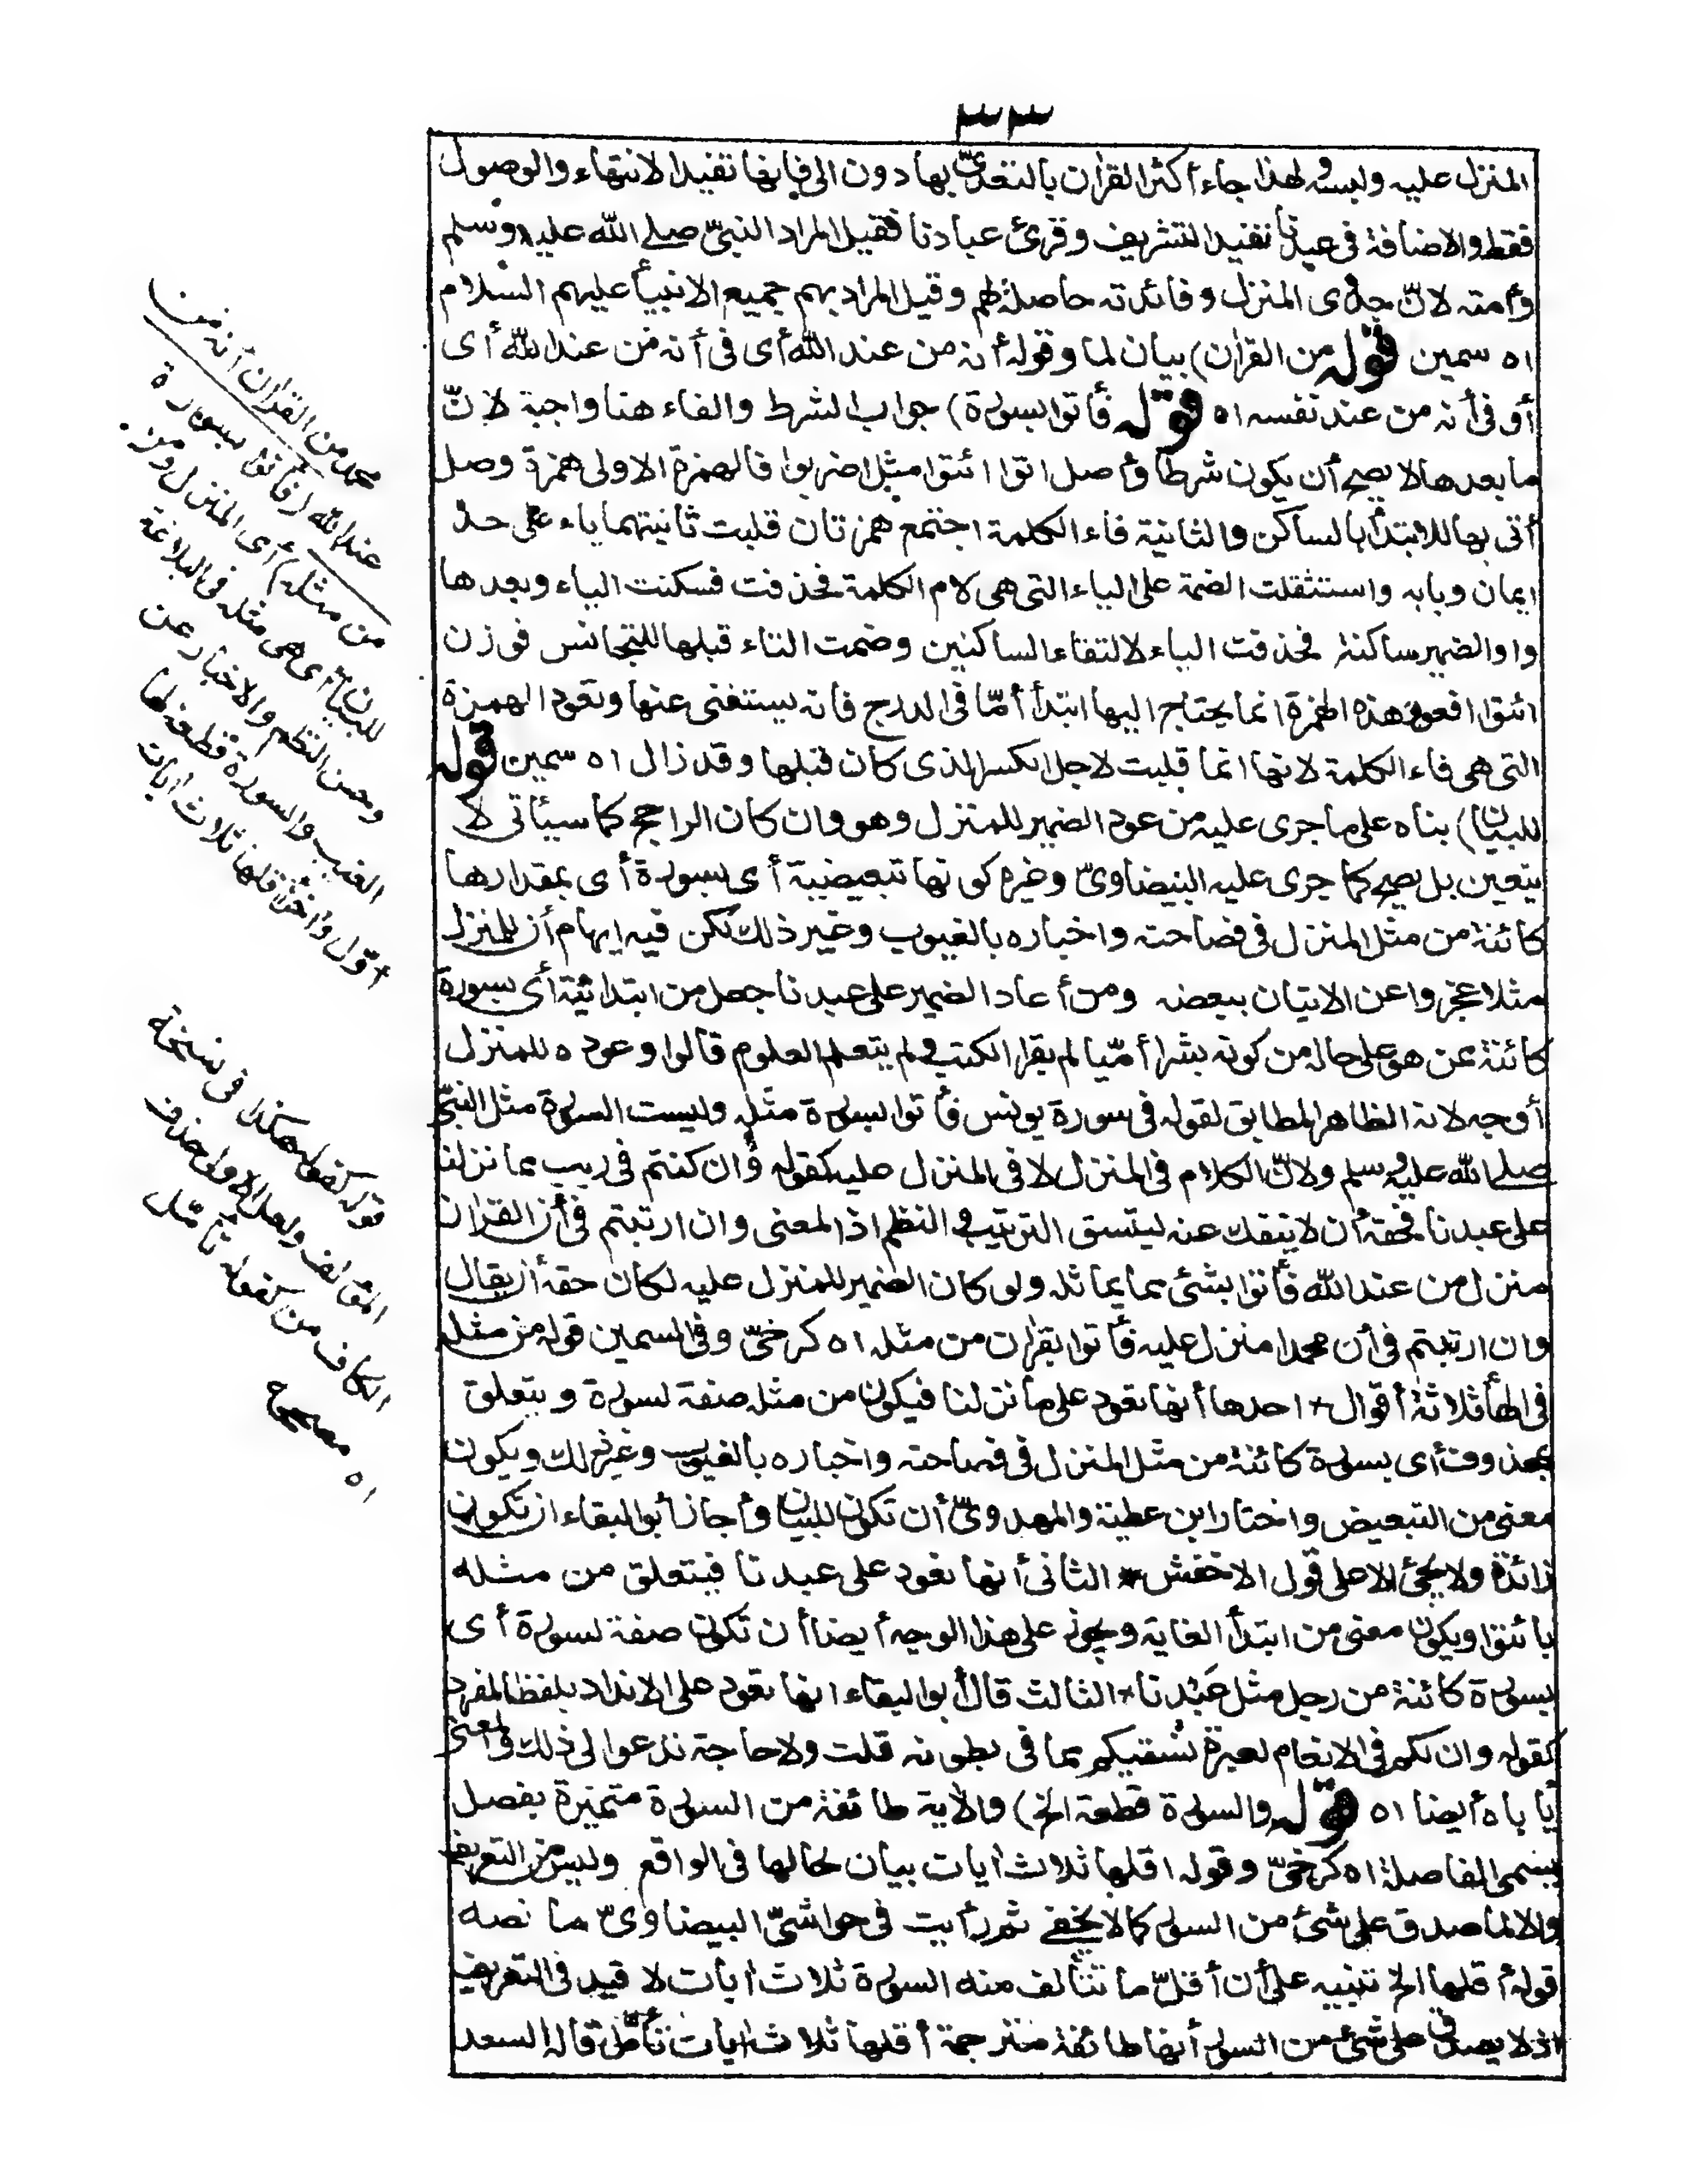 ٣٣
المنزل عليه ولبسه ولهذا جاء أكثر القرآن بالتعدّي بها دون الى فانها تفيد الانتهاء والوصول
فقط والاضافة في عبدنا تفيد التشريف وقرئ عبادنا فقيل المراد النبيّ صلى الله عليه وسلم
وأمته لانّ جدوى المنزل وفائدته حاصلة لهم وقيل المراد بهم جميع الانبياء عليهم السلام
اه سمين قوله من القرآن) بيان لما وقوله أنه من عند الله أى في أنه من عند الله أى
أو في أنه من عند نفسه اه قوله فأتوا بسورة) جواب الشرط والفاء هنا واجبة لانّ
ما بعدها لا يصح أن يكون شرطا وأصل ائتوا ائتيوا مثل اضربوا فالهمزة الاولى همزة وصل
أتى بها للابتدأ بالساكن والثانية فاء الكلمة اجتمع همزتان قلبت ثانيتهما ياء على حد
ايمان وبابه واستثقلت الضمة على الياء التى هى لام الكلمة فحذفت فسكنت الياء وبعدها
واو الضمير ساكنة فحذفت الياء لالتقاء الساكنين وضمت التاء قبلها للتجانس فوزن
ائتوا افعوا وهذه الهمزة انما يحتاج اليها ابتدأ أمّا في الدرج فانه يستغنى عنها وتعود الهمزة
التى هى فاء الكلمة لانها انما قلبت لاجل الكسر الذى كان قبلها وقد زال اه سمين قوله
للبيان) بناه على ما جرى عليه من عود الضمير للمنزل وهو وان كان الراجح كما سيأتى لا
يتعين بل يصح كما جرى عليه البيضاوىّ وغيره كونها تبعيضية أى بسورة أى بمقدارها
كائنة من مثل المنزل في فصاحته واخباره بالغيوب وغير ذلك لكن فيه ايهام أن للمنزل
مثلا عجزوا عن الاتيان ببعضه ومن أعاد الضمير على عبدنا جعل من ابتدائية أى بسورة
كائنة عن هو على حاله من كونه بشرا أمّيا لم يقرا الكتب ولم يتعلم العلوم قالوا وعوده للمنزل
أوجه لانه الظاهر المطابق لقوله في سورة يونس فأتوا بسورة مثله وليست السورة مثل النبيّ
صلى الله عليه وسلم ولانّ الكلام في المنزل لا في المنزل عليه كقوله وان كنتم في ريب مما نزلنا
على عبدنا فحقه أن لا ينفك عنه ليتسق الترتيب والنظم اذ المعنى وان ارتبتم في أن القرآن
منزل من عند الله فأتوا بشئ مما يماثله ولو كان الضمير للمنزل عليه لكان حقه أن يقال
وان ارتبتم في أن محمدا منزل عليه فأتوا بقرآن من مثله اه كرخىّ وفي السمين قوله من مثله
في الهأ ثلاثة أقوال * احدها أنها تعود على ما نزلنا فيكون من مثله صفة لسورة ويتعلق
بمحذوف أى بسورة كائنة من مثل المنزل في فصاحته واخباره بالغيوب وغير ذلك ويكون
معنى من التبعيض واختار ابن عطية والمهدوىّ أن تكون للبيان وأجاز أبو البقاء ان تكون
زائدة ولا يجئ الا على قول الاخفش * الثانى أنها تعود على عبدنا فيتعلق من مثله
بائتوا ويكون معنى من ابتدأ الغاية ويجوز على هذا الوجه أيضا أن تكون صفة لسورة أى
بسورة كائنة من رجل مثل عبدنا * الثالث قال أبو البقاء انها تعود على الانداد بلفظ المفرد
كقوله وان لكم في الانعام لعبرة نسقيكم مما في بطونه قلت ولا حاجة تدعوا الى ذلك والمعنى
يأباه أيضا اه قوله والسورة قطعة الخ) والآية طائفة من السورة متميزة بفصل
يسمى الفاصلة اه كرخىّ وقوله اقلها ثلاث ايات بيان لحالها في الواقع وليس من التعريف
والا لما صدق على شئ من السور كما لا يخفى ثم رأيت في حواشىّ البيضاوىّ ما نصه
قوله أقلها الخ تنبيه على أن أقلّ ما تتألف منه السورة ثلاث ايات لا قيد في التعريف
اذ لا يصدق على شئ من السور أنها طائفة مترجمة أقلها ثلاث ايات تأمّل قاله السعد
محمد من القرآن أنه من
عند الله (فأتوا بسورة
من مثله) أى المنزل ومن
للبيان أى هى مثله في البلاغة
وحسن النظم والاخبار عن
الغيب والسورة قطعة لها
أوّل وآخر أقلها ثلاث ايات
قوله كقوله هكذا في نسخة
المؤلف ولعل الاولى حذف
الكاف من كقوله تأمّل
اه مصحح